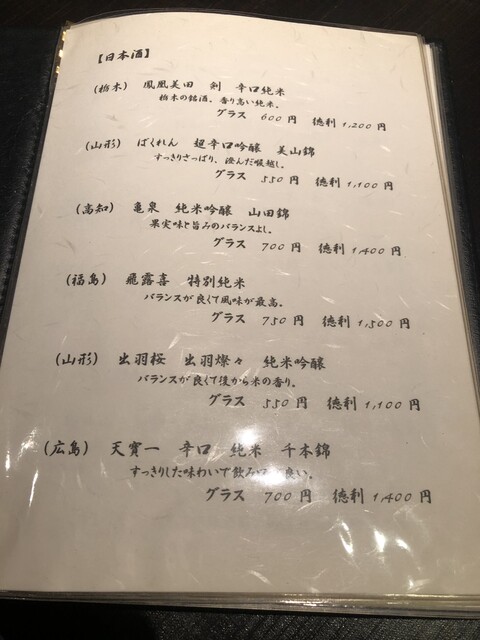 【日本酒】
(栃木) 鳳凰美田 剣 辛口純米
栃木の銘酒。香り高い純米。
グラス 600円 徳利 1,200円
(山形) ばくれん 超辛口吟醸 美山錦
すっきりさっぱり、澄んだ喉越し。
グラス 550円 徳利 1,100円
(高知) 亀泉 純米吟醸 山田錦
果実味と旨みのバランスよし。
グラス 700円 徳利 1,400円
(福島) 飛露喜 特別純米
バランスが良くて風味が最高。
グラス 750円 徳利 1,500円
(山形) 出羽桜 出羽燦々 純米吟醸
バランスが良くて後から米の香り。
グラス 550円 徳利 1,100円
(広島) 天寶一 辛口 純米 千本錦
すっきりした味わいで飲み口 良い。
グラス 700円 徳利 1,400円